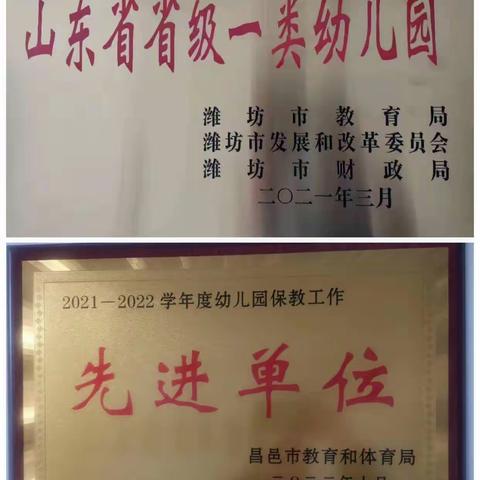 山东省省级一类幼儿园
潍坊市教育局
潍坊市发展和改革委员会
潍坊市财政局
二〇二一年三月
2021—2022学年度幼儿园保教工作
先进单位
昌邑市教育和体育局